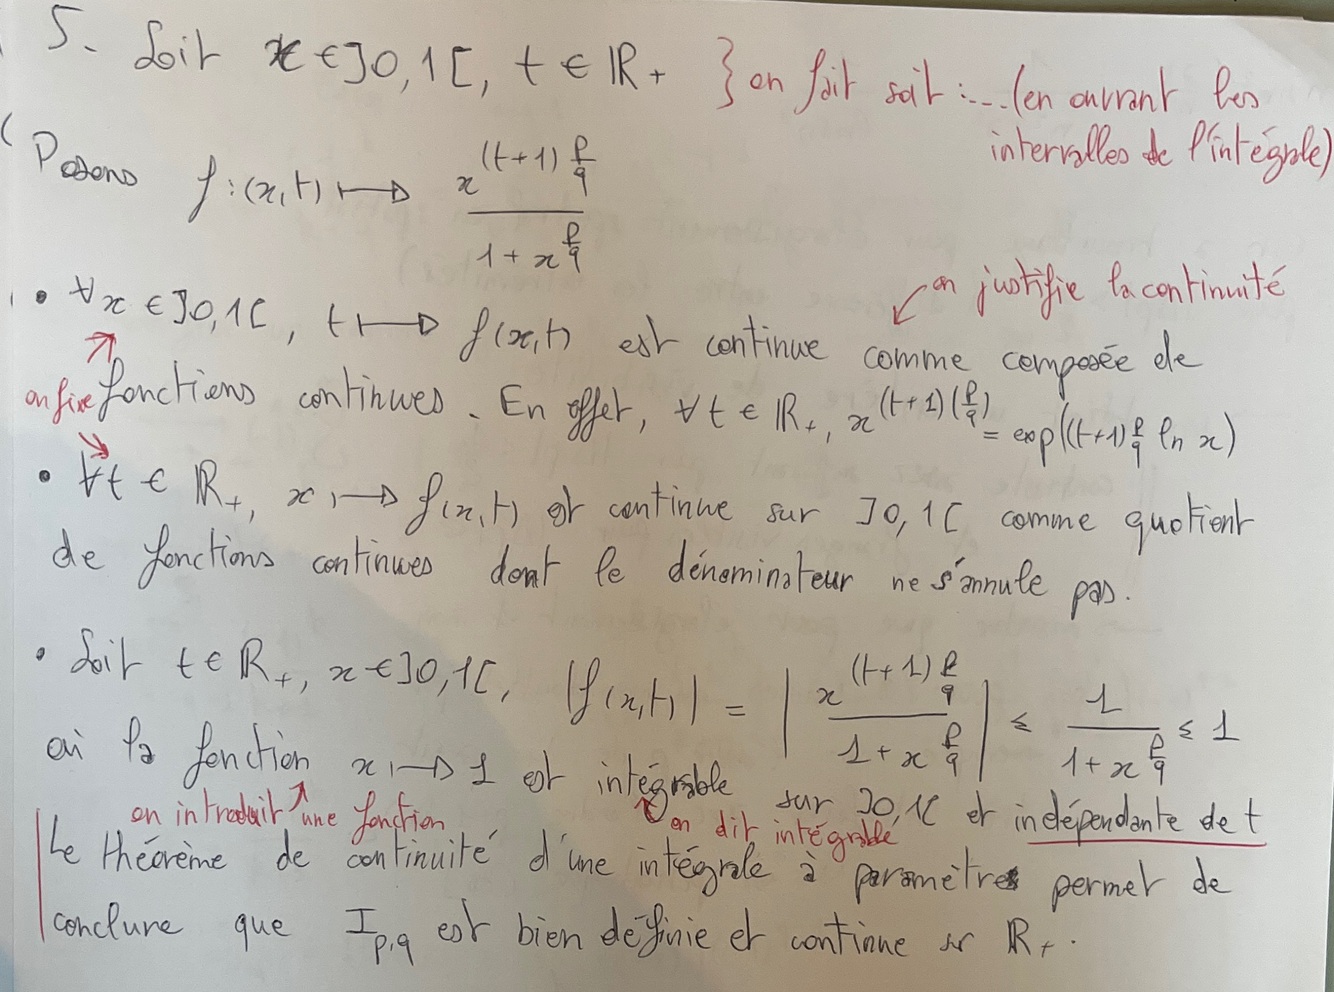 5. Soit x ∈ ]0,1[, t ∈ ℝ+ } on fait soit :... (en ouvrant les
intervalles de l'intégrale)
Posons f : (x,t) ↦ x^((t+1) p/q) / (1 + x^(p/q))
• ∀x ∈ ]0,1[, t ↦ f(x,t) est continue comme composée de
on justifie la continuité
on fixe
fonctions continues. En effet, ∀t ∈ ℝ+, x^((t+1)(p/q)) = exp((t+1) p/q ln x)
• ∀t ∈ ℝ+, x ↦ f(x,t) est continue sur ]0,1[ comme quotient
de fonctions continues dont le dénominateur ne s'annule pas.
• Soit t ∈ ℝ+, x ∈ ]0,1[, |f(x,t)| = | x^((t+1) p/q) / (1 + x^(p/q)) | ≤ 1 / (1 + x^(p/q)) ≤ 1
où la fonction x ↦ 1 est intégrable sur ]0,1[ et indépendante de t
on introduit une fonction
on dit intégrable
Le théorème de continuité d'une intégrale à paramètres permet de
conclure que I_p,q est bien définie et continue sr ℝ+.